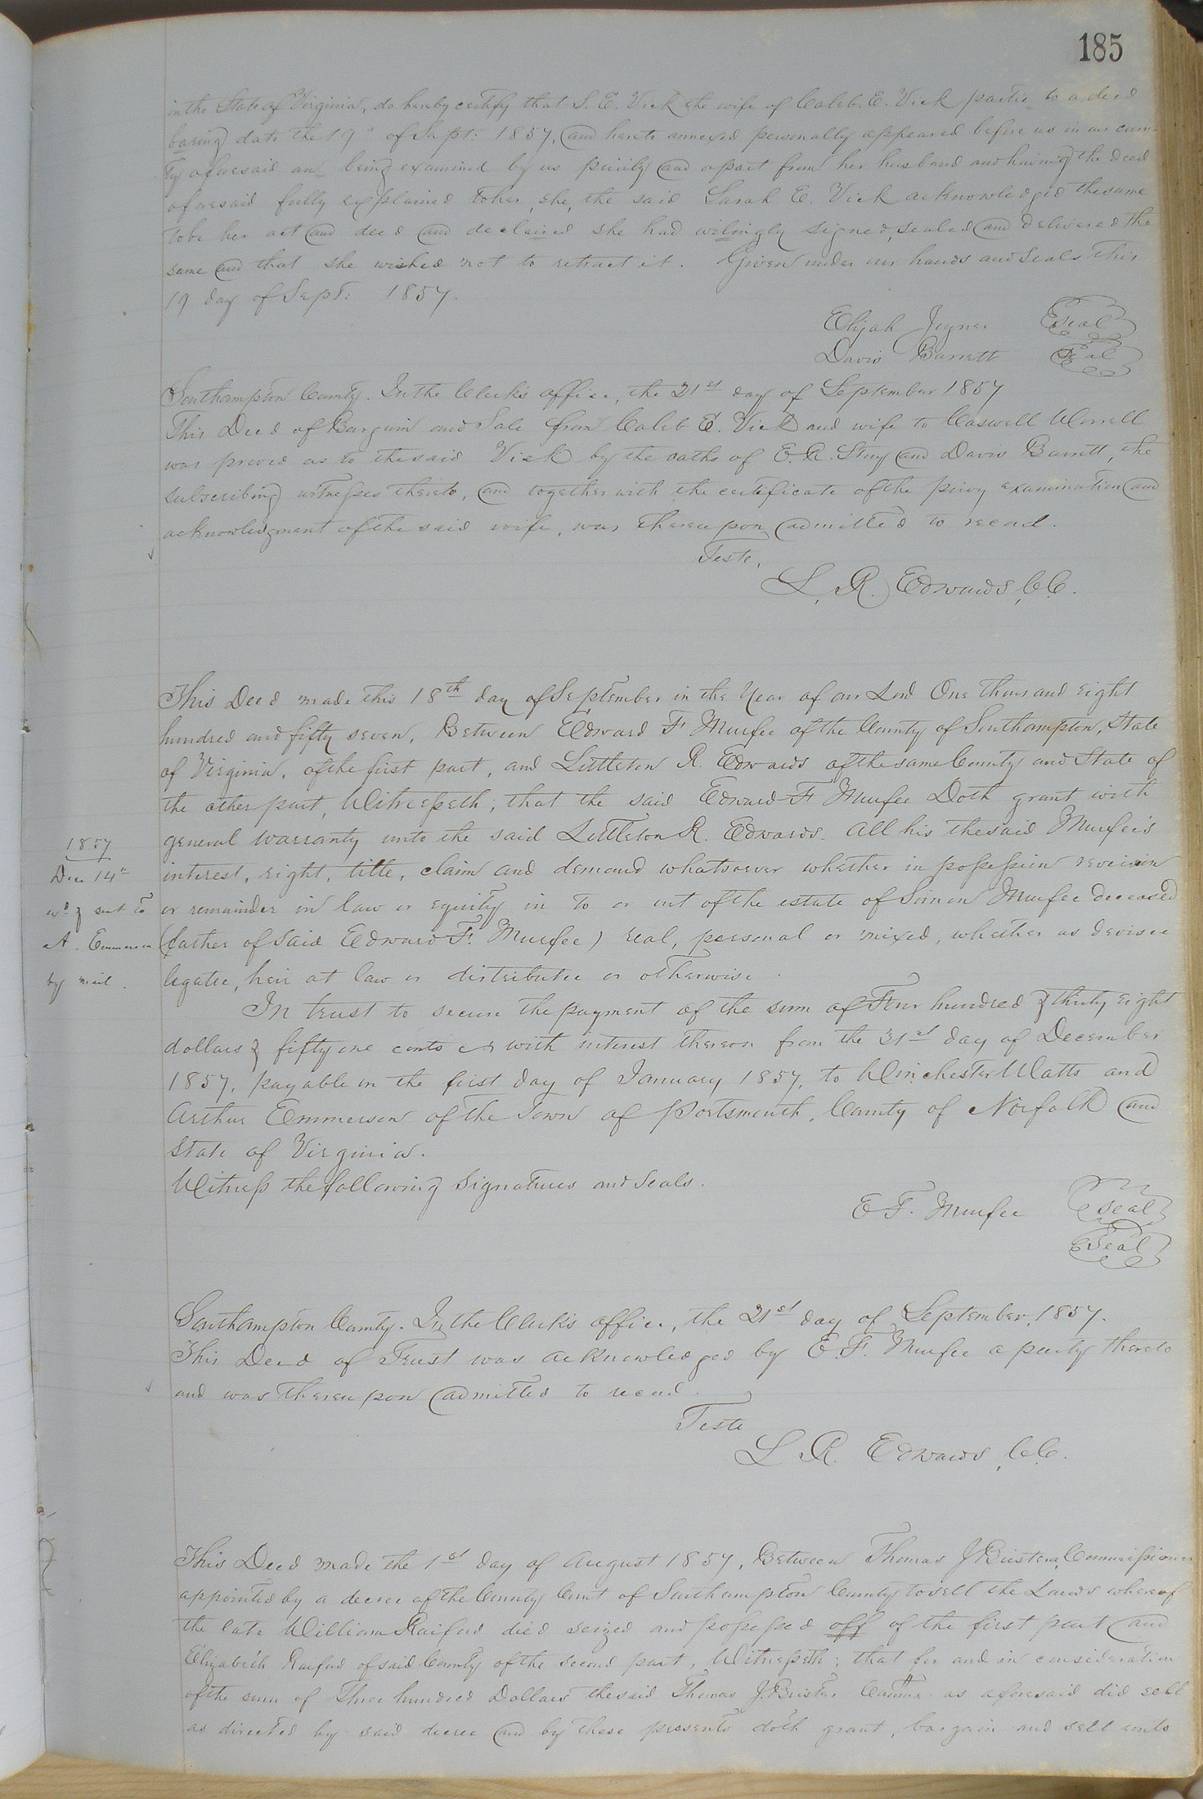 185
in the State of Virginia, do hereby certify that S. E. Vick the wife of Caleb E. Vick parties to a deed
baring date the 19th of Sept: 1857, and hereto annexed personally appeared before us in our coun-
ty aforesaid and being examined by us privily and apart from her husband and having the deed
aforesaid fully explained to her, she, the said Sarah E. Vick acknowledged the same
to be her act and deed and declared she had wilingly signed, sealed and delivered the
same and that she wished not to retract it. Given under our hands and seals this
19 day of Sept: 1857.
Elijah Joyner Seal
Davis Barrett Seal
Southampton County. In the Clerk's office, the 21st day of September 1857
This Deed of Bargain and Sale from Caleb E. Vick and wife to Caswell Worrell
was proved as to the said Vick by the oaths of E. R. Story and Davis Barrett, the
subscribing witnesses thereto, and together with the certificate of the privy examination and
acknowledgment of the said wife, was thereupon admitted to record.
Teste,
L. R. Edwards, C.C.
This Deed made this 18th day of September in the Year of our Lord One thousand eight
hundred and fifty seven, Between Edward F Murfee of the County of Southampton, State
of Virginia, of the first part, and Littleton R. Edwards of the same County and State of
the other part, Witnesseth, that the said Edward F Murfee Doth grant with
general warranty unto the said Littleton R. Edwards. All his the said Murfee's
interest, right, title, claim and demand whatsoever whether in possession reversion
or remainder in law or equity in to or out of the estate of Simon Murfee deceased
(father of said Edward F. Murfee) real, personal or mixed, whether as devisee
legatee, heir at law or distributee or otherwise.
1857
Dec 14th
& sent to
A. Emmerson
by mail.
In trust to secure the payment of the sum of Four hundred & thirty eight
dollars & fifty one cents with interest thereon from the 31st day of December
1857, payable on the first day of January 1857, to Winchester Watts and
Arthur Emmerson of the Town of Portsmouth, County of Norfolk and
State of Virginia.
Witness the following signatures and seals.
E F. Murfee Seal
Seal
Southampton County. In the Clerk's office, the 21st day of September, 1857.
This Deed of Trust was acknowledged by E. F. Murfee a party thereto
and was thereupon admitted to record.
Teste
L R. Edwards, C.C.
This Deed made the 1st day of August 1857, Between Thomas J Bristow, Commissioner
appointed by a decree of the County Court of Southampton County to sell the Lands whereof
the late William Raiford died seized and possessed off of the first part and
Elizabeth Raiford of said County of the second part, Witnesseth; that for and in consideration
of the sum of Three hundred Dollars the said Thomas J. Bristow Comm. as aforesaid did sell
as directed by said decree and by these presents doth grant, bargain and sell unto